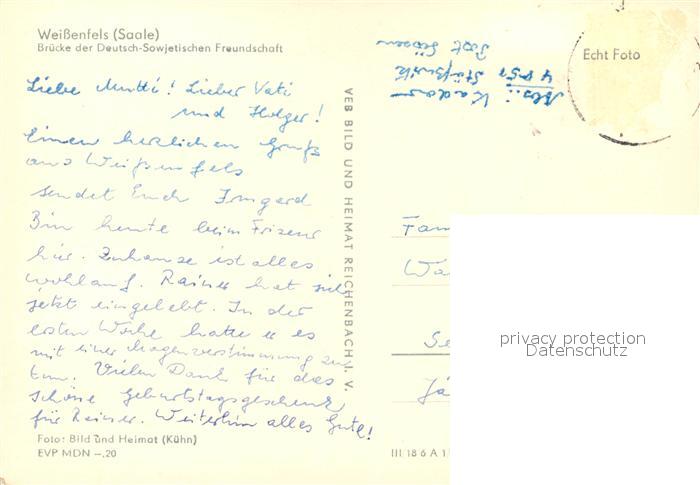 Weißenfels (Saale)
Brücke der Deutsch-Sowjetischen Freundschaft
Liebe Mutti! Lieber Vati
und Holger!
Einen herzlichen Gruß
aus Weißenfels
sendet Euch Irmgard
Bin heute beim Friseur
hier. Zuhause ist alles
wohlauf. Rainer hat sich
jetzt eingelebt. In der
ersten Woche hatte er es
mit einer Magenverstimmung zu
tun. Vielen Dank für das
schöne Geburtstagsgeschenk
für Rainer. Weiterhin alles Gute!
Foto: Bild und Heimat (Kühn)
EVP MDN –,20
VEB BILD UND HEIMAT REICHENBACH I. V.
Abs.: Kadar
4851
Post
Echt Foto
Fam
Wa
Se
Jä
III 18 6 A 1
privacy protection
Datenschutz